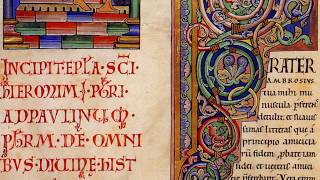 INCIPIT EPLA SCI
HIERONIMI PBRI
AD PAVLINUM
PBRM DE OMNI
BVS DIUINE HIST
RATER
AMBROSIUS
tua mihi mu
nuscula
detulit & sua
uissimas litteras que a
principio amicicia
fidem pbate iam
fidei & ueteris amici
Vera